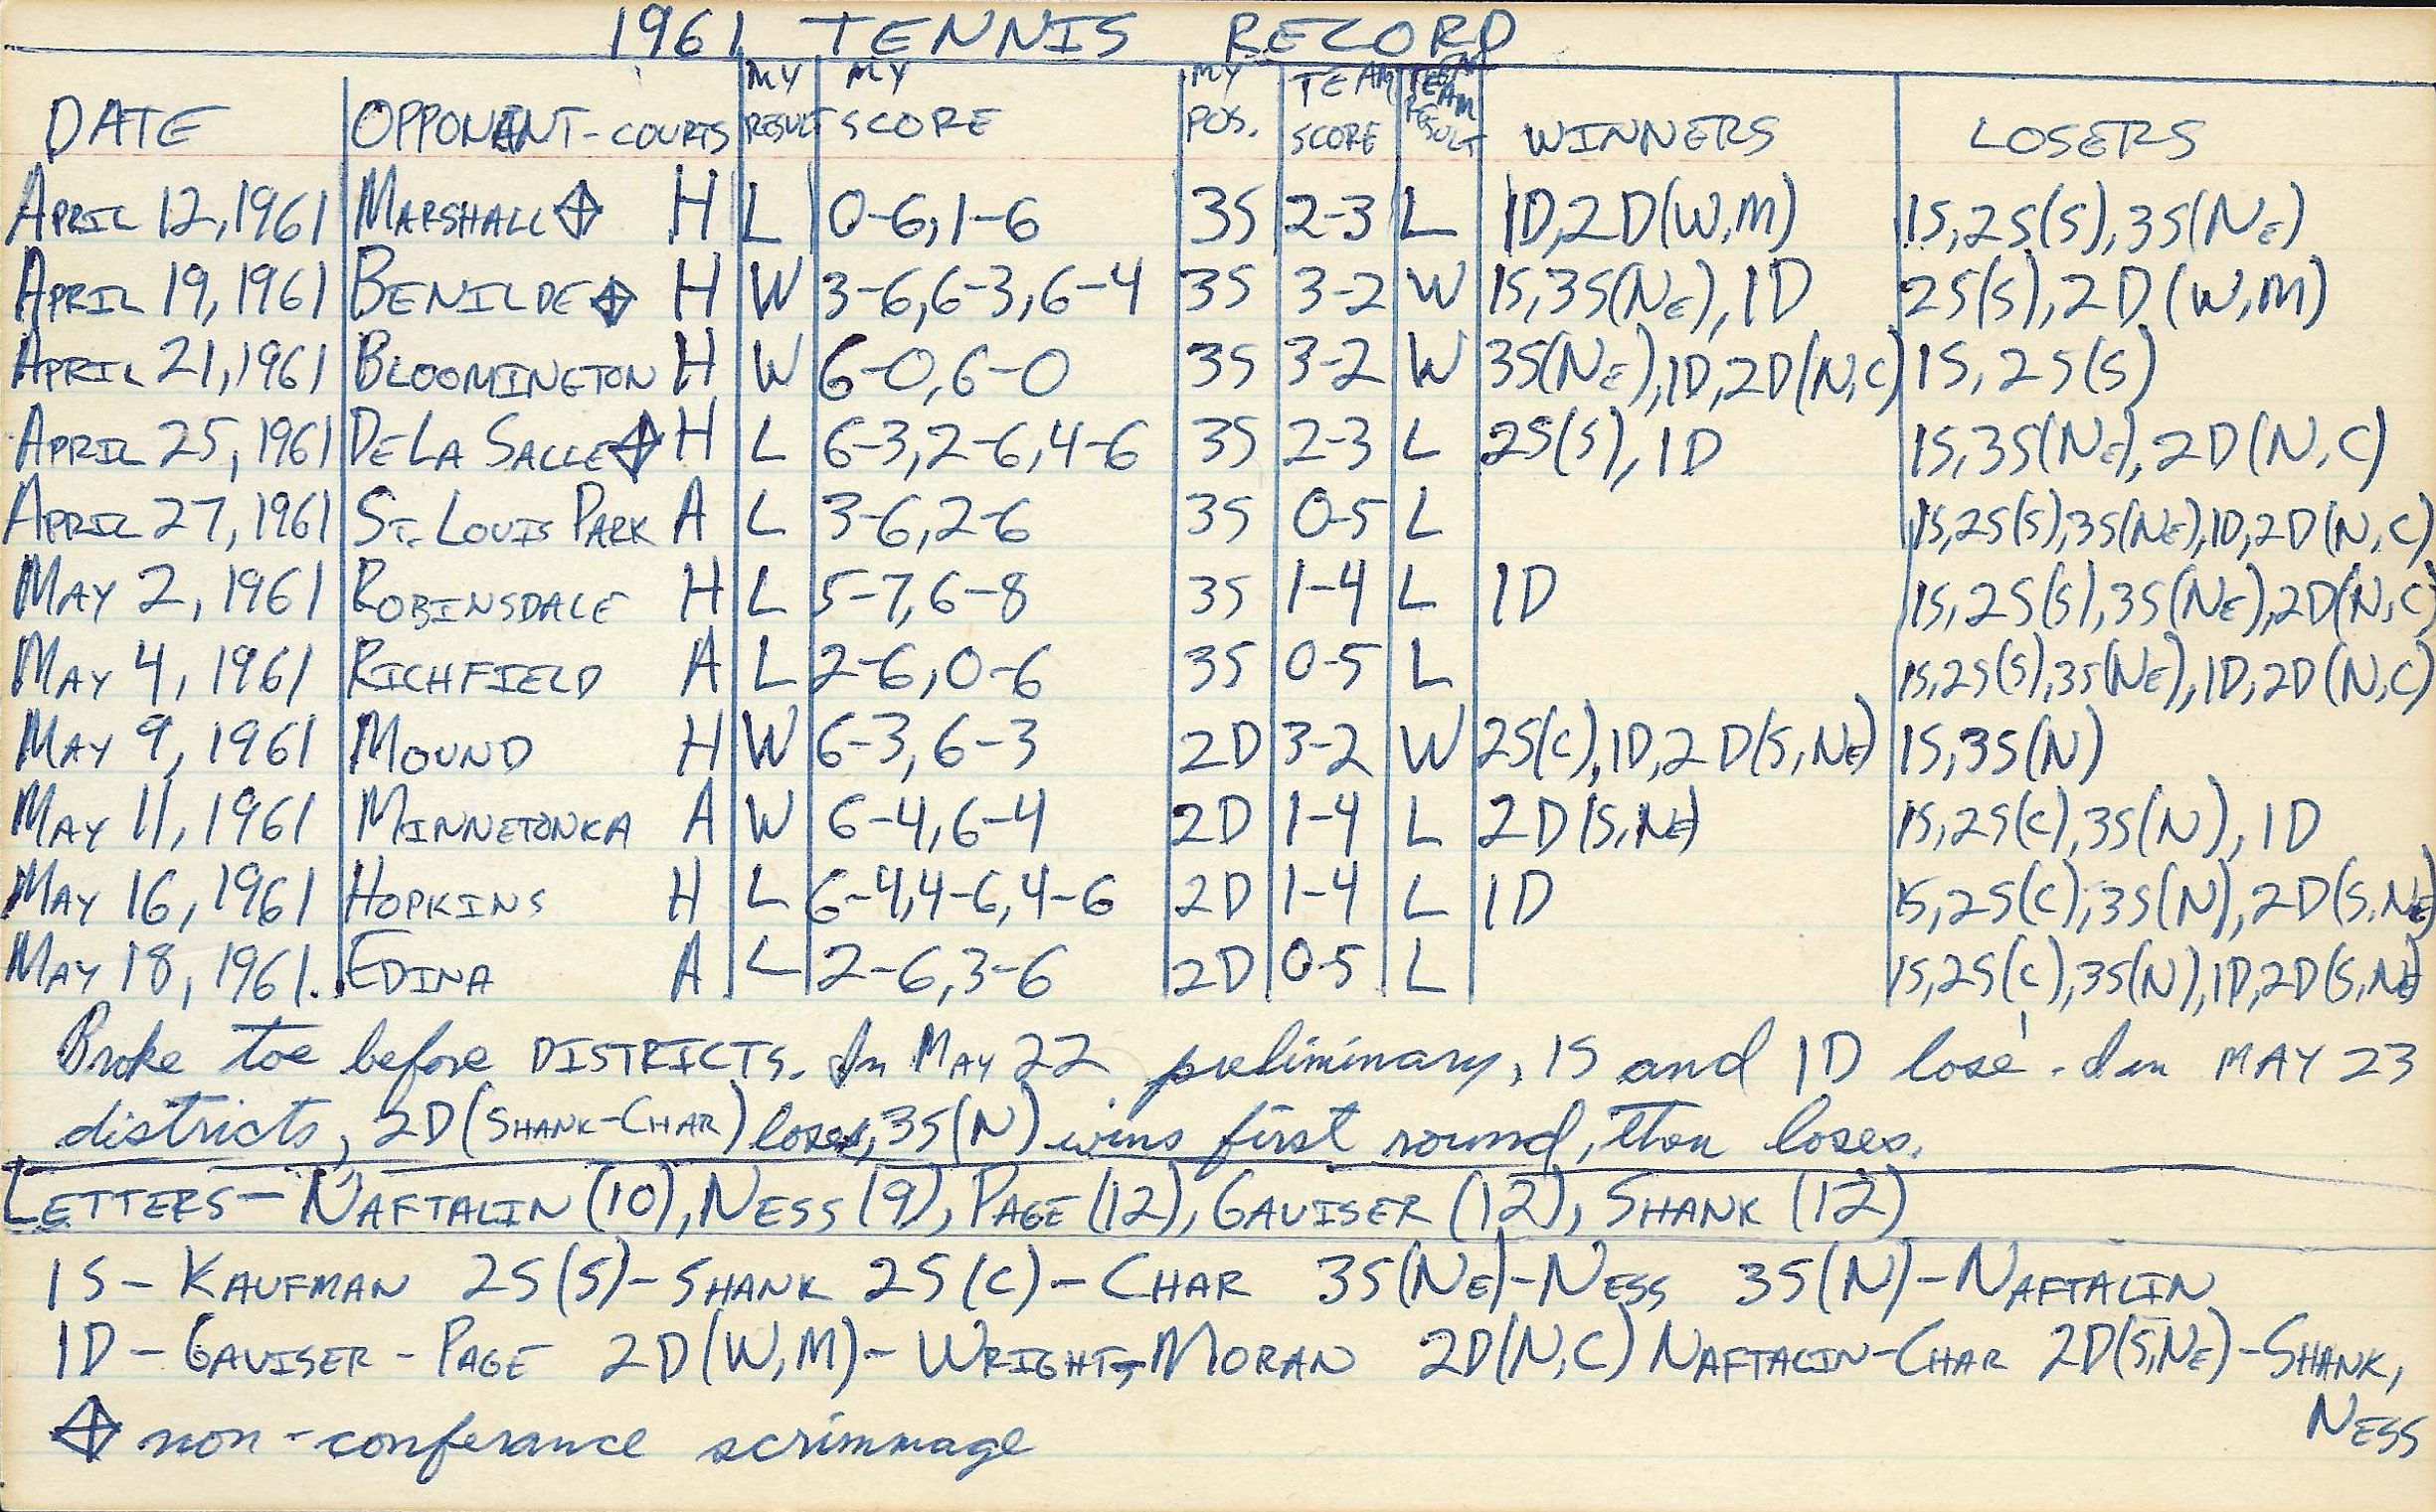 1961 TENNIS RECORD
DATE OPPONANT-COURTS MY RESULT MY SCORE MY POS. TEAM SCORE TEAM RESULT WINNERS LOSERS
APRIL 12, 1961 MARSHALL H L 0-6, 1-6 3S 2-3 L 1D, 2D(W,M) 1S, 2S(S), 3S(NE)
APRIL 19, 1961 BENILDE H W 3-6, 6-3, 6-4 3S 3-2 W 1S, 3S(NE), 1D 2S(S), 2D(W,M)
APRIL 21, 1961 BLOOMINGTON H W 6-0, 6-0 3S 3-2 W 3S(NE), 1D, 2D(N,C) 1S, 2S(S)
APRIL 25, 1961 DE LA SALLE H L 6-3, 2-6, 4-6 3S 2-3 L 2S(S), 1D 1S, 3S(NE), 2D(N,C)
APRIL 27, 1961 ST. LOUIS PARK A L 3-6, 2-6 3S 0-5 L 1S, 2S(S), 3S(NE), 1D, 2D(N,C)
MAY 2, 1961 ROBINSDALE H L 5-7, 6-8 3S 1-4 L 1D 1S, 2S(S), 3S(NE), 2D(N,C)
MAY 4, 1961 RICHFIELD A L 2-6, 0-6 3S 0-5 L 1S, 2S(S), 3S(NE), 1D, 2D(N,C)
MAY 9, 1961 MOUND H W 6-3, 6-3 2D 3-2 W 2S(C), 1D, 2D(S,NE) 1S, 3S(N)
MAY 11, 1961 MINNETONKA A W 6-4, 6-4 2D 1-4 L 2D(S,NE) 1S, 2S(C), 3S(N), 1D
MAY 16, 1961 HOPKINS H L 6-4, 4-6, 4-6 2D 1-4 L 1D 1S, 2S(C), 3S(N), 2D(S,NE)
MAY 18, 1961. EDINA A L 2-6, 3-6 2D 0-5 L 1S, 2S(C), 3S(N), 1D, 2D(S,NE)
Broke toe before DISTRICTS. In MAY 22 preliminary, 1S and 1D lose. In MAY 23
districts, 2D (SHANK-CHAR) loses, 3S(N) wins first round, then loses.
LETTERS- NAFTALIN (10), NESS (9), PAGE (12), GAVISER (12), SHANK (12)
1S- KAUFMAN 2S(S)-SHANK 2S(C)-CHAR 3S(NE)-NESS 3S(N)-NAFTALIN
1D-GAVISER-PAGE 2D(W,M)-WRIGHT-MORAN 2D(N,C) NAFTALIN-CHAR 2D(S,NE)-SHANK,
NESS
non-conferance scrimmage